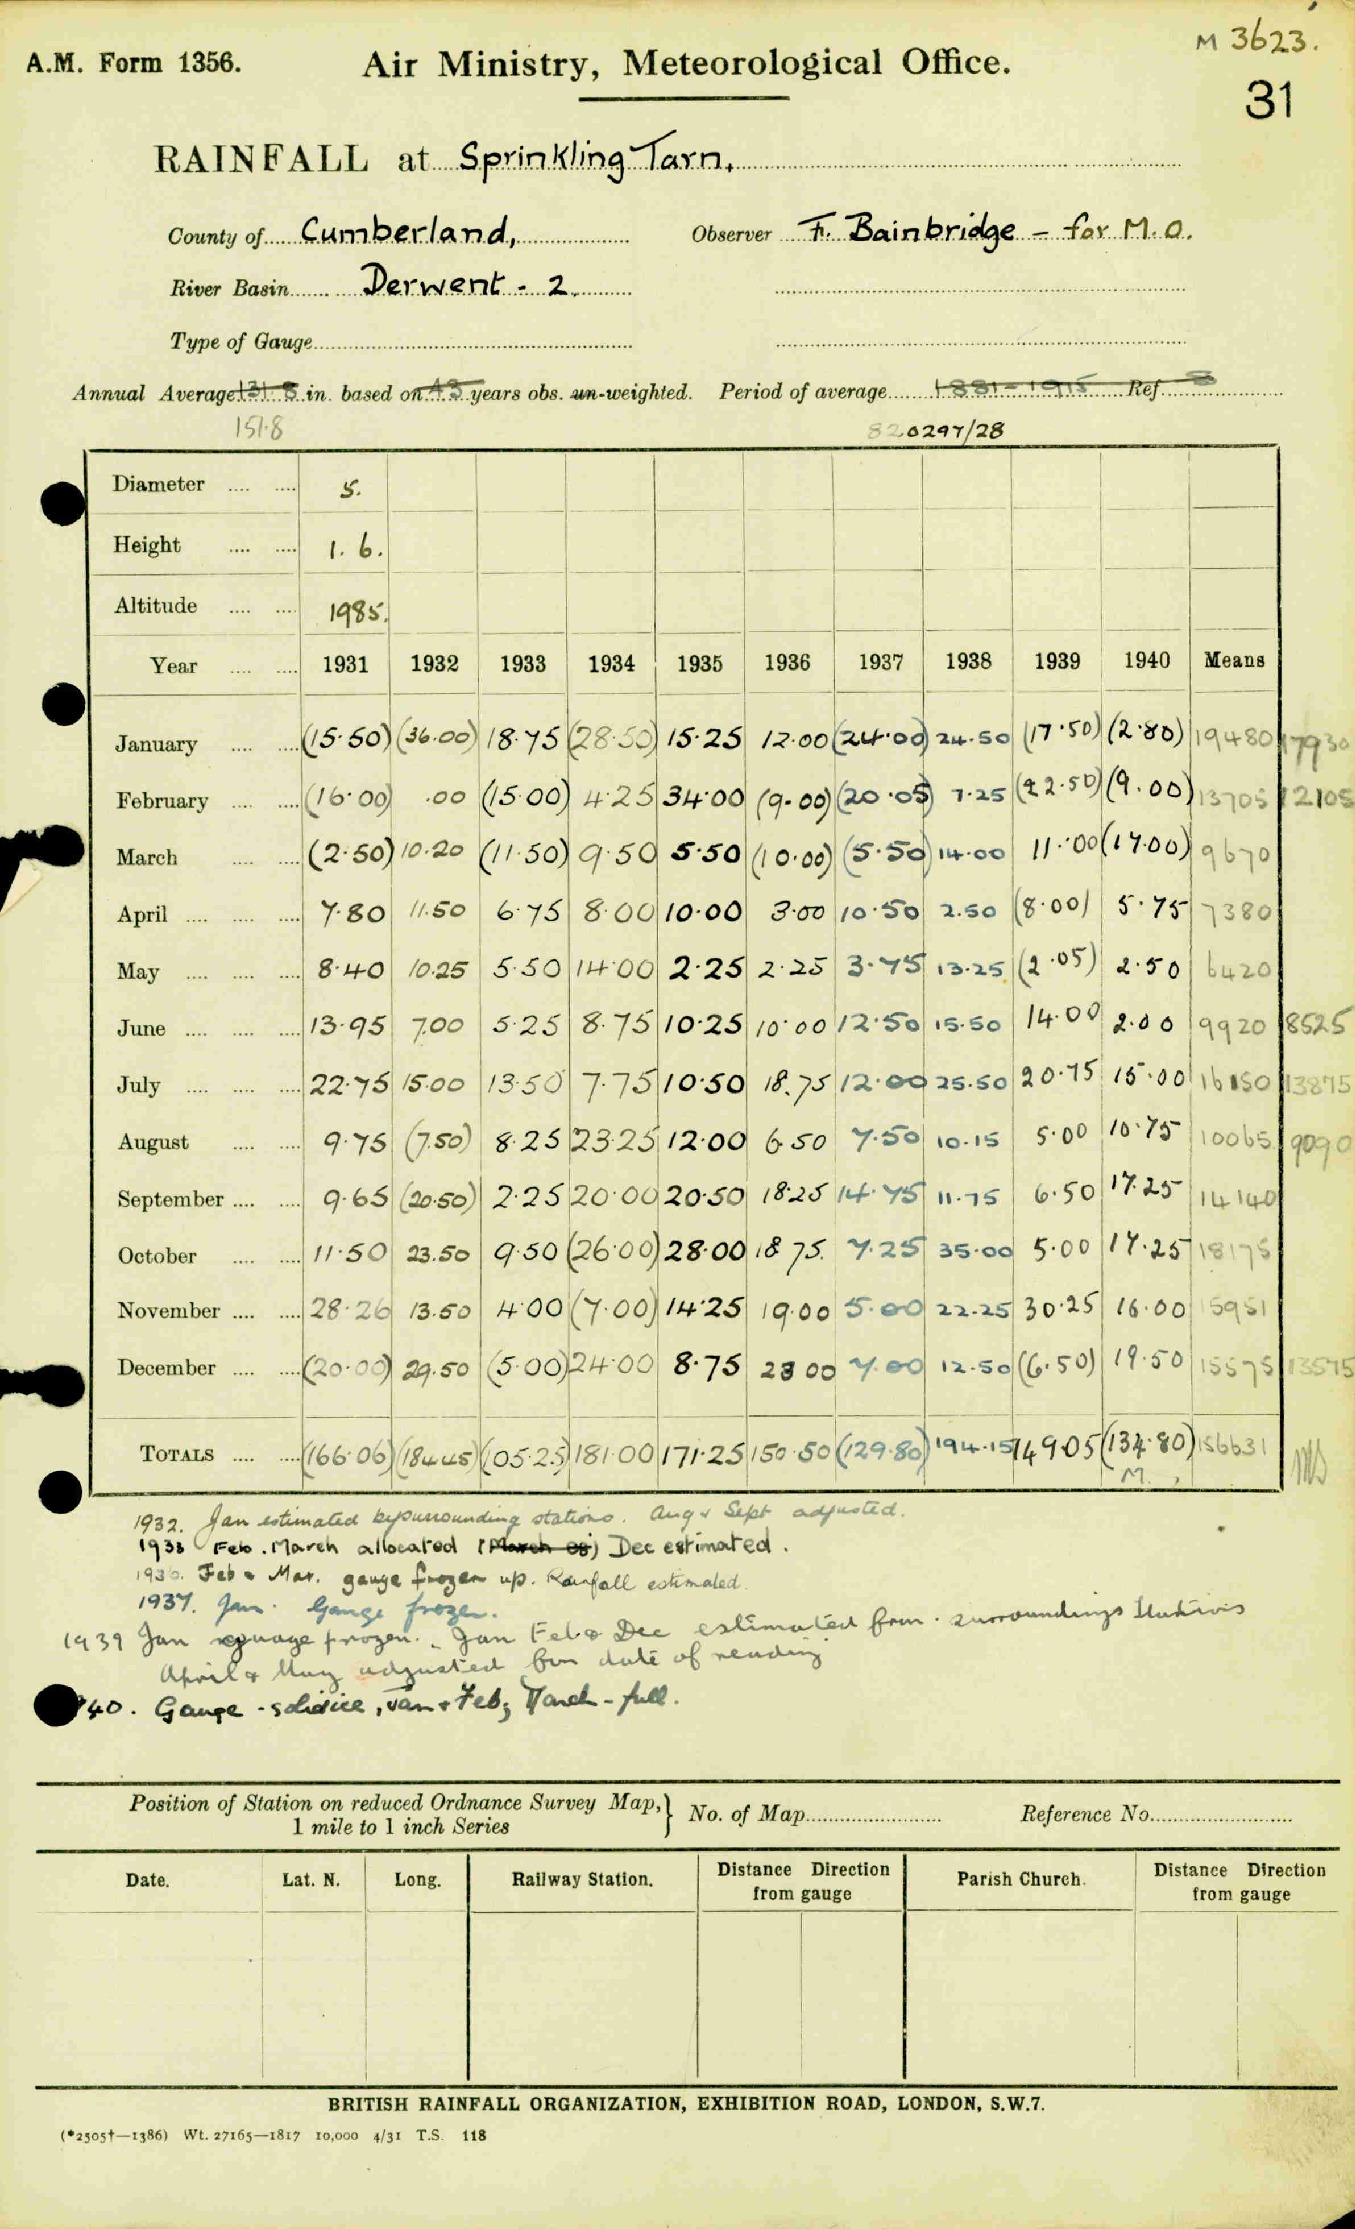 M 3623.
A.M. Form 1356. Air Ministry, Meteorological Office.
31
RAINFALL at Sprinkling Tarn,
County of Cumberland, Observer F. Bainbridge - for M.O.
River Basin Derwent - 2.
Type of Gauge
Annual Average 131.8 in. based on 43 years obs. un-weighted. Period of average 1881-1915 Ref 8
151.8 820297/28
Diameter 5.
Height 1. 6.
Altitude 1985.
Year 1931 1932 1933 1934 1935 1936 1937 1938 1939 1940 Means
January (15.50) (36.00) 18.75 (28.50) 15.25 12.00 (24.00) 24.50 (17.50) (2.80) 19480 17930
February (16.00) .00 (15.00) 4.25 34.00 (9.00) (20.05) 7.25 (22.50) (9.00) 13705 12105
March (2.50) 10.20 (11.50) 9.50 5.50 (10.00) (5.50) 14.00 11.00 (17.00) 9670
April 7.80 11.50 6.75 8.00 10.00 3.00 10.50 2.50 (8.00) 5.75 7380
May 8.40 10.25 5.50 14.00 2.25 2.25 3.75 13.25 (2.05) 2.50 6420
June 13.95 7.00 5.25 8.75 10.25 10.00 12.50 15.50 14.00 2.00 9920 8525
July 22.75 15.00 13.50 7.75 10.50 18.75 12.00 25.50 20.75 15.00 16150 13875
August 9.75 (7.50) 8.25 23.25 12.00 6.50 7.50 10.15 5.00 10.75 10065 9090
September 9.65 (20.50) 2.25 20.00 20.50 18.25 14.75 11.75 6.50 17.25 14140
October 11.50 23.50 9.50 (26.00) 28.00 18.75 7.25 35.00 5.00 17.25 18175
November 28.26 13.50 4.00 (7.00) 14.25 19.00 5.00 22.25 30.25 16.00 15951
December (20.00) 29.50 (5.00) 24.00 8.75 23.00 7.00 12.50 (6.50) 19.50 15575 13575
TOTALS (166.06) (184.45) (105.25) 181.00 171.25 150.50 (129.80) 194.15 149.05 (134.80) 156631
M.
1932. Jan estimated by surrounding stations. Aug & Sept adjusted.
1933 Feb. March allocated (March) Dec estimated.
1936. Feb & Mar. gauge frozen up. Rainfall estimated.
1937. Jan. Gauge frozen.
1939 Jan gauge frozen. Jan Feb & Dec estimated from surroundings stations
April & May adjusted for date of reading
40. Gauge - solid ice, Jan & Feb; March - full.
Position of Station on reduced Ordnance Survey Map, } No. of Map Reference No.
1 mile to 1 inch Series
Date. Lat. N. Long. Railway Station. Distance Direction from gauge Parish Church. Distance Direction from gauge
BRITISH RAINFALL ORGANIZATION, EXHIBITION ROAD, LONDON, S.W.7.
(*2505†—1386) Wt. 27165—1817 10,000 4/31 T.S. 118